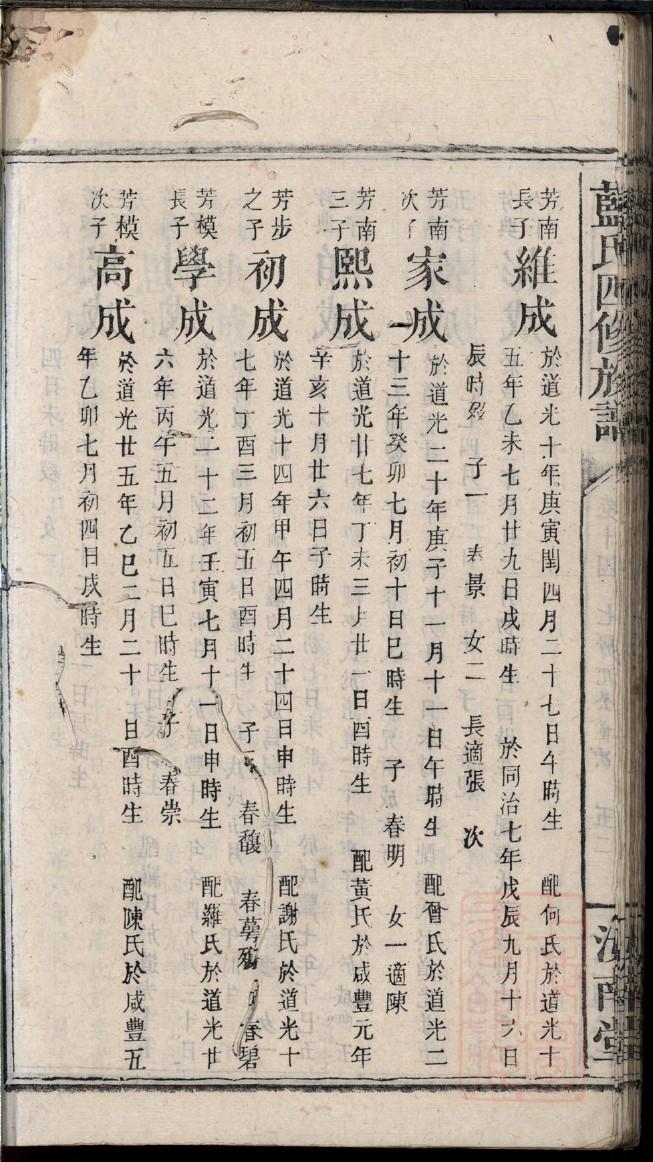 藍氏四修族譜
芳南長子
維成
於道光十年庚寅閏四月二十七日午時生 配何氏於道光十
五年乙未七月廿九日戌時生 於同治七年戊辰九月十六日
辰時歿 子一 春景 女二 長適張 次
芳南次子
家成
於道光二十年庚子十一月十一日午時生 配曾氏於道光二
十三年癸卯七月初十日巳時生 子 春明 女一適陳
芳南三子
熙成
於道光廿七年丁未三月廿一日酉時生 配黃氏於咸豐元年
辛亥十月廿六日子時生
芳步之子
初成
於道光十四年甲午四月二十四日申時生 配謝氏於道光十
七年丁酉三月初五日酉時生 子 春馥 春 春碧
芳模長子
學成
於道光二十二年壬寅七月十一日申時生 配羅氏於道光廿
六年丙午五月初五日巳時生 子 春崇
芳模次子
高成
於道光廿五年乙巳二月二十 日酉時生 配陳氏於咸豐五
年乙卯七月初四日戌時生